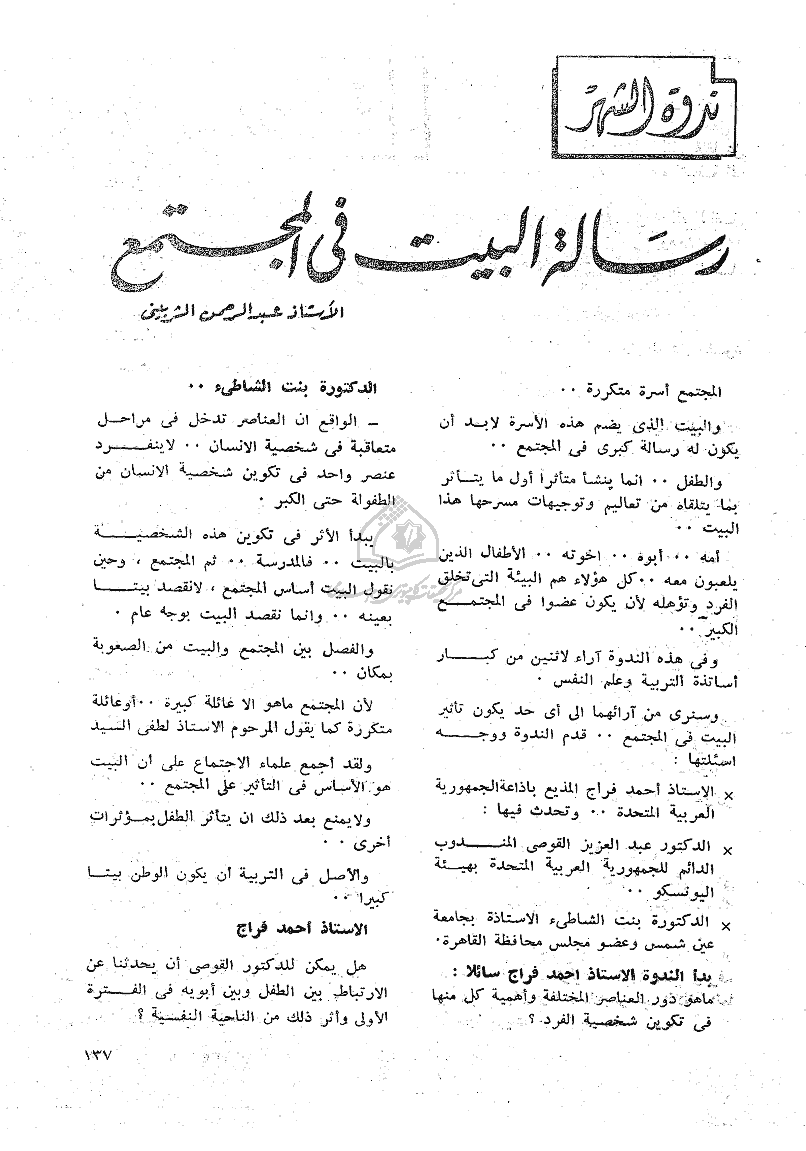 ندوة الشهر
رسالة البيت فى المجتمع
الأستاذ عبد الرحمن الشربينى
المجتمع أسرة متكررة ٠٠
والبيت الذى يضم هذه الأسرة لابد أن
يكون له رسالة كبرى فى المجتمع ٠٠
والطفل ٠٠ انما ينشأ متأثرا أول ما يتأثر
بما يتلقاه من تعاليم وتوجيهات مسرحها هذا
البيت ٠٠
أمه ٠٠ أبوه ٠٠ اخوته ٠٠ الأطفال الذين
يلعبون معه ٠٠ كل هؤلاء هم البيئة التى تخلق
الفرد وتؤهله لأن يكون عضوا فى المجتمع
الكبير ٠٠
وفى هذه الندوة آراء لاثنين من كبار
أساتذة التربية وعلم النفس ٠
وسنرى من آرائهما الى أى حد يكون تأثير
البيت فى المجتمع ٠٠ قدم الندوة ووجه
اسئلتها :
× الاستاذ أحمد فراج المذيع باذاعة الجمهورية
العربية المتحدة ٠٠ وتحدث فيها :
× الدكتور عبد العزيز القوصى المندوب
الدائم للجمهورية العربية المتحدة بهيئة
اليونسكو ٠٠
× الدكتورة بنت الشاطىء الاستاذة بجامعة
عين شمس وعضو مجلس محافظة القاهرة٠
بدأ الندوة الاستاذ احمد فراج سائلا :
ماهو دور العناصر المختلفة وأهمية كل منها
فى تكوين شخصية الفرد ؟
الدكتورة بنت الشاطىء ٠٠
– الواقع ان العناصر تدخل فى مراحل
متعاقبة فى شخصية الانسان ٠٠ لاينفرد
عنصر واحد فى تكوين شخصية الانسان من
الطفولة حتى الكبر ٠
يبدأ الأثر فى تكوين هذه الشخصية
بالبيت ٠٠ فالمدرسة ٠٠ ثم المجتمع ، وحين
نقول البيت أساس المجتمع ، لانقصد بيتا
بعينه ٠٠ وانما نقصد البيت بوجه عام ٠
والفصل بين المجتمع والبيت من الصعوبة
بمكان ٠٠
لأن المجتمع ماهو الا عائلة كبيرة ٠٠ أوعائلة
متكررة كما يقول المرحوم الاستاذ لطفى السيد
ولقد أجمع علماء الاجتماع على أن البيت
هو الأساس فى التأثير على المجتمع ٠٠
ولايمنع بعد ذلك ان يتأثر الطفل بمؤثرات
أخرى ٠٠
والأصل فى التربية أن يكون الوطن بيتا
كبيرا ٠٠
الاستاذ أحمد فراج
هل يمكن للدكتور القوصى أن يحدثنا عن
الارتباط بين الطفل وبين أبويه فى الفترة
الأولى وأثر ذلك من الناحية النفسية ؟
١٣٧